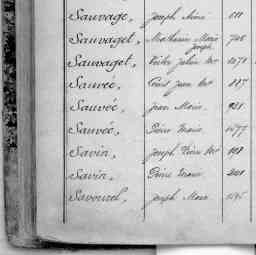 Sauvage, Joseph Aimé 111
Sauvaget, Mathurin Marie
Joseph
Sauvaget, Julien Mie
Sauvée, Jean Mie 887
Sauvée, Jean Marie 921
Sauvée, Pierre Marie 1577
Savin, Joseph Pierre Mie 108
Savin, Pierre Marie 201
Savourel, Joseph Marie 1595